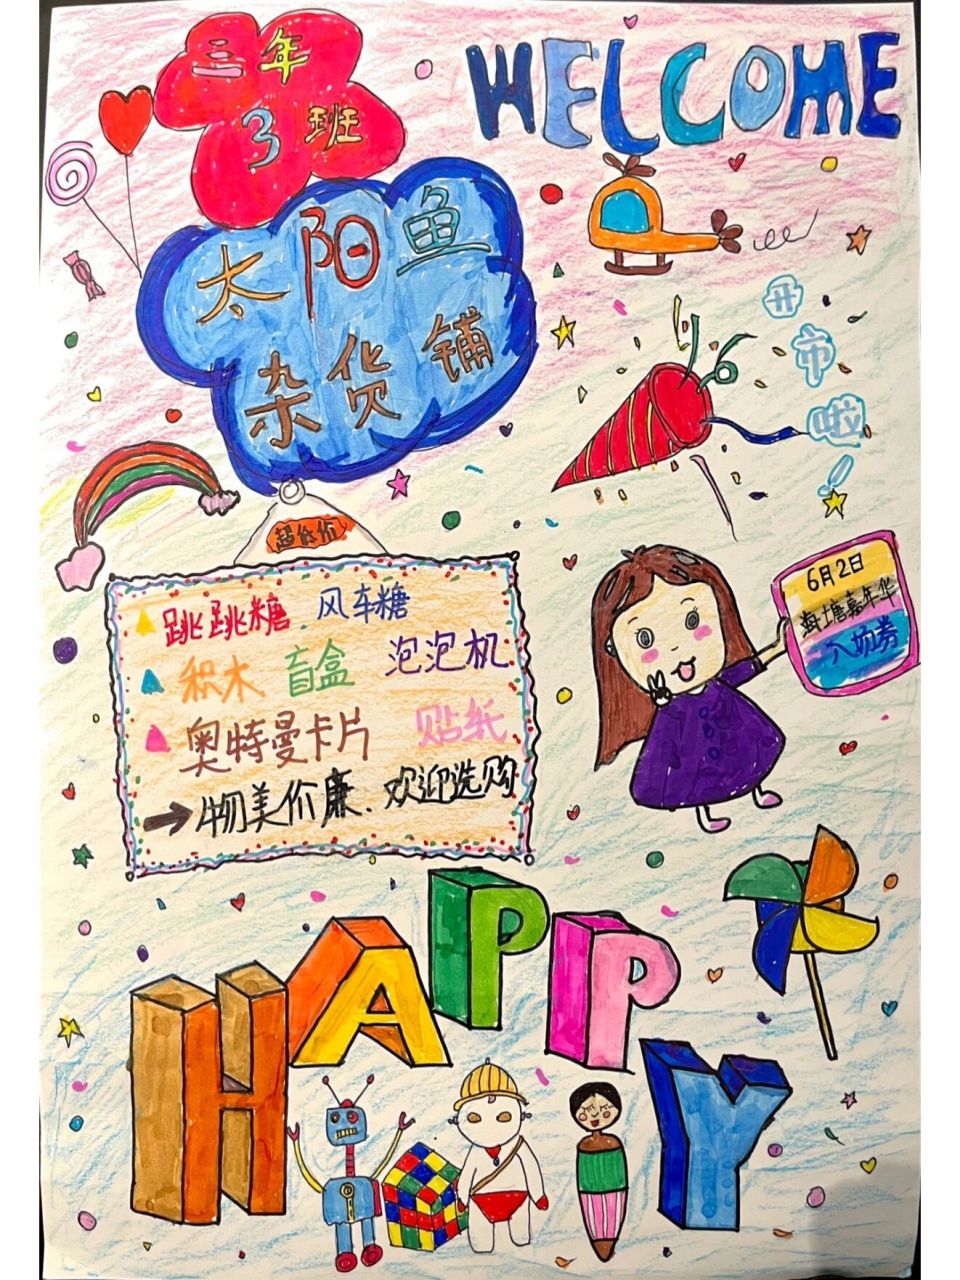 三年
3班
WELCOME
太阳鱼
杂货铺
开市啦!
超低价
跳跳糖 风车糖
积木 盲盒 泡泡机
奥特曼卡片 贴纸
→物美价廉.欢迎选购
6月2日
海塘嘉年华
入场券
HAPPY